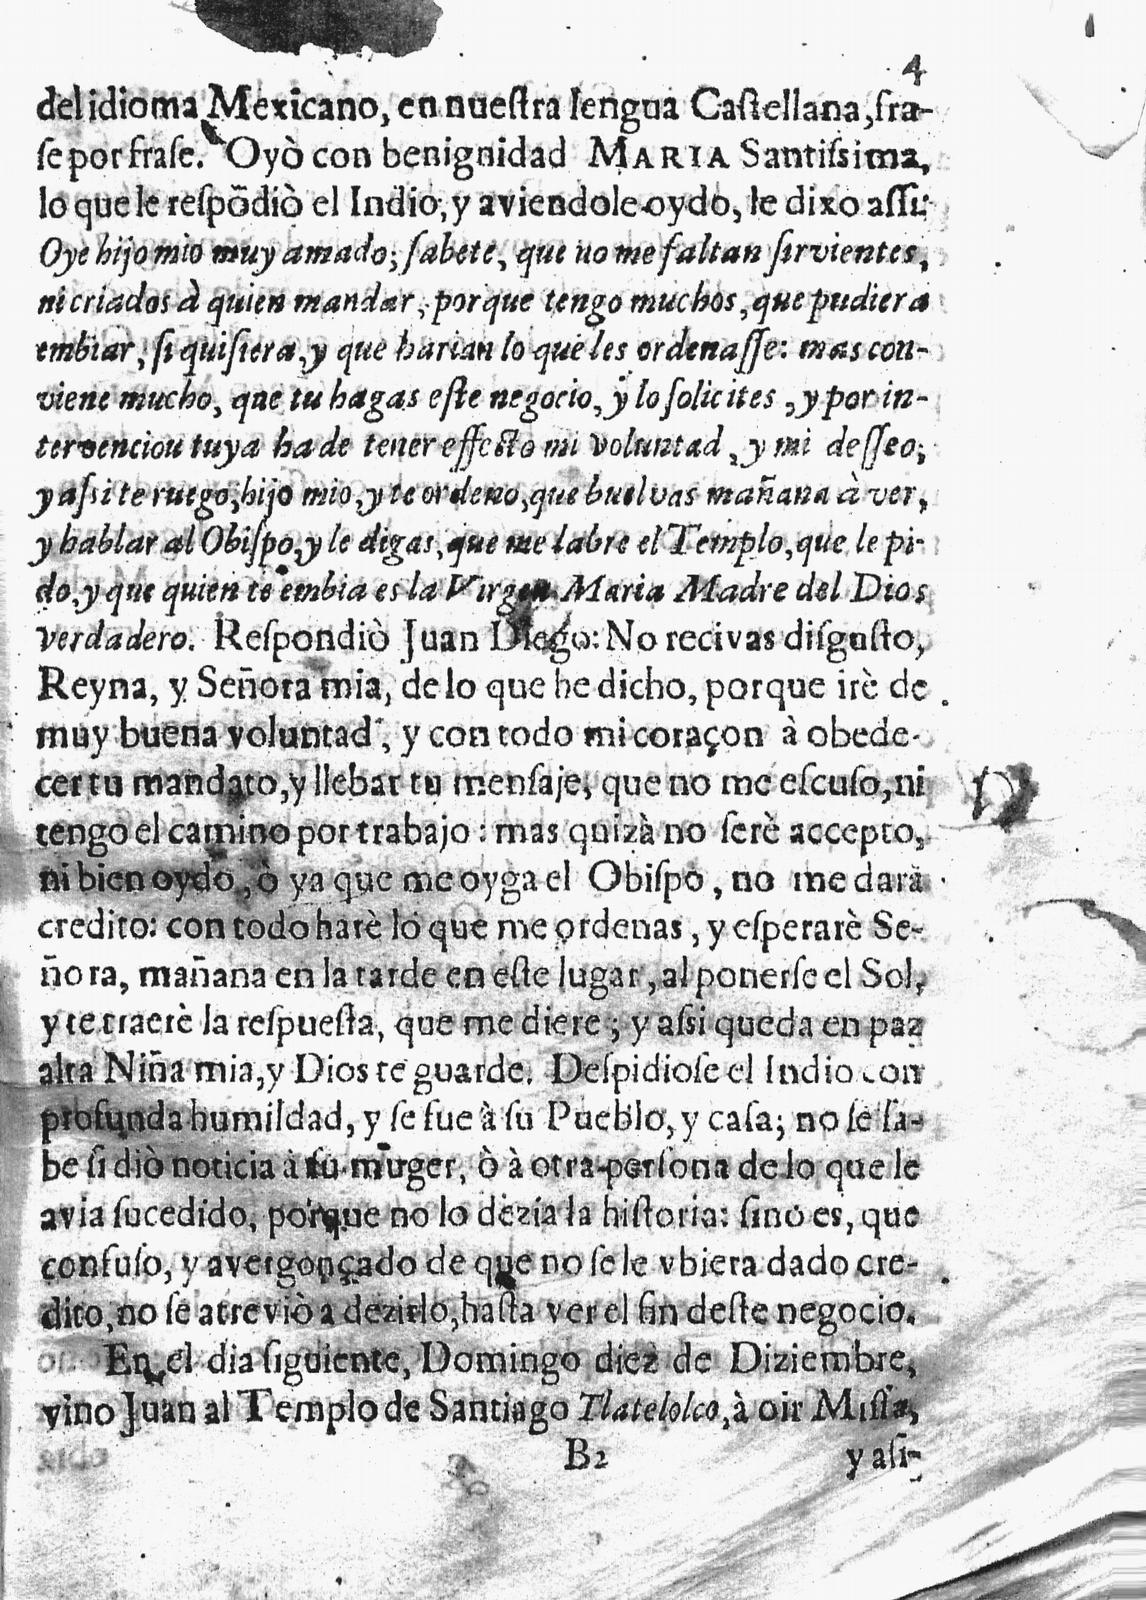 4
del idioma Mexicano, en nueſtra lengua Caſtellana, fra-
ſe por fraſe. Oyò con benignidad MARIA Santiſsima,
lo que le reſpõdiò el Indio, y aviendole oydo, le dixo aſſi:
Oye hijo mio muy amado; ſabete, que no me faltan ſirvientes,
ni criados à quien mandar, porque tengo muchos, que pudiera
embiar, ſi quiſiera, y que harian lo que les ordenaſſe: mas con-
viene mucho, que tu hagas eſte negocio, y lo ſolicites, y por in-
tervenciou tuya ha de tener effecto mi voluntad, y mi deſſeo;
y aſsi te ruego, hijo mio, y te ordeno, que buelvas mañana à ver,
y hablar al Obiſpo, y le digas, que me labre el Templo, que le pi-
do, y que quien te embia es la Virgen Maria Madre del Dios
verdadero. Reſpondiò Juan Diego: No recivas diſguſto,
Reyna, y Señora mia, de lo que he dicho, porque irè de
muy buena voluntad, y con todo mi coraçon à obede-
cer tu mandato, y llebar tu menſaje, que no me eſcuſo, ni
tengo el camino por trabajo: mas quizà no ſerè accepto,
ni bien oydo, ò ya que me oyga el Obiſpo, no me darà
credito: con todo harè lo que me ordenas, y eſperarè Se-
ñora, mañana en la tarde en eſte lugar, al ponerſe el Sol,
y te traerè la reſpueſta, que me diere; y aſsi queda en paz
alta Niña mia, y Dios te guarde. Deſpidioſe el Indio con
profunda humildad, y ſe fue à ſu Pueblo, y caſa; no ſe ſa-
be ſi diò noticia à ſu muger, ò à otra perſona de lo que le
avia ſucedido, porque no lo dezia la hiſtoria: ſino es, que
confuſo, y avergonçado de que no ſe le vbiera dado cre-
dito, no ſe atreviò a dezirlo, haſta ver el fin deſte negocio.
En el dia ſiguiente, Domingo diez de Diziembre,
vino Juan al Templo de Santiago Tlatelolco, à oir Miſſa,
B2 y aſi-